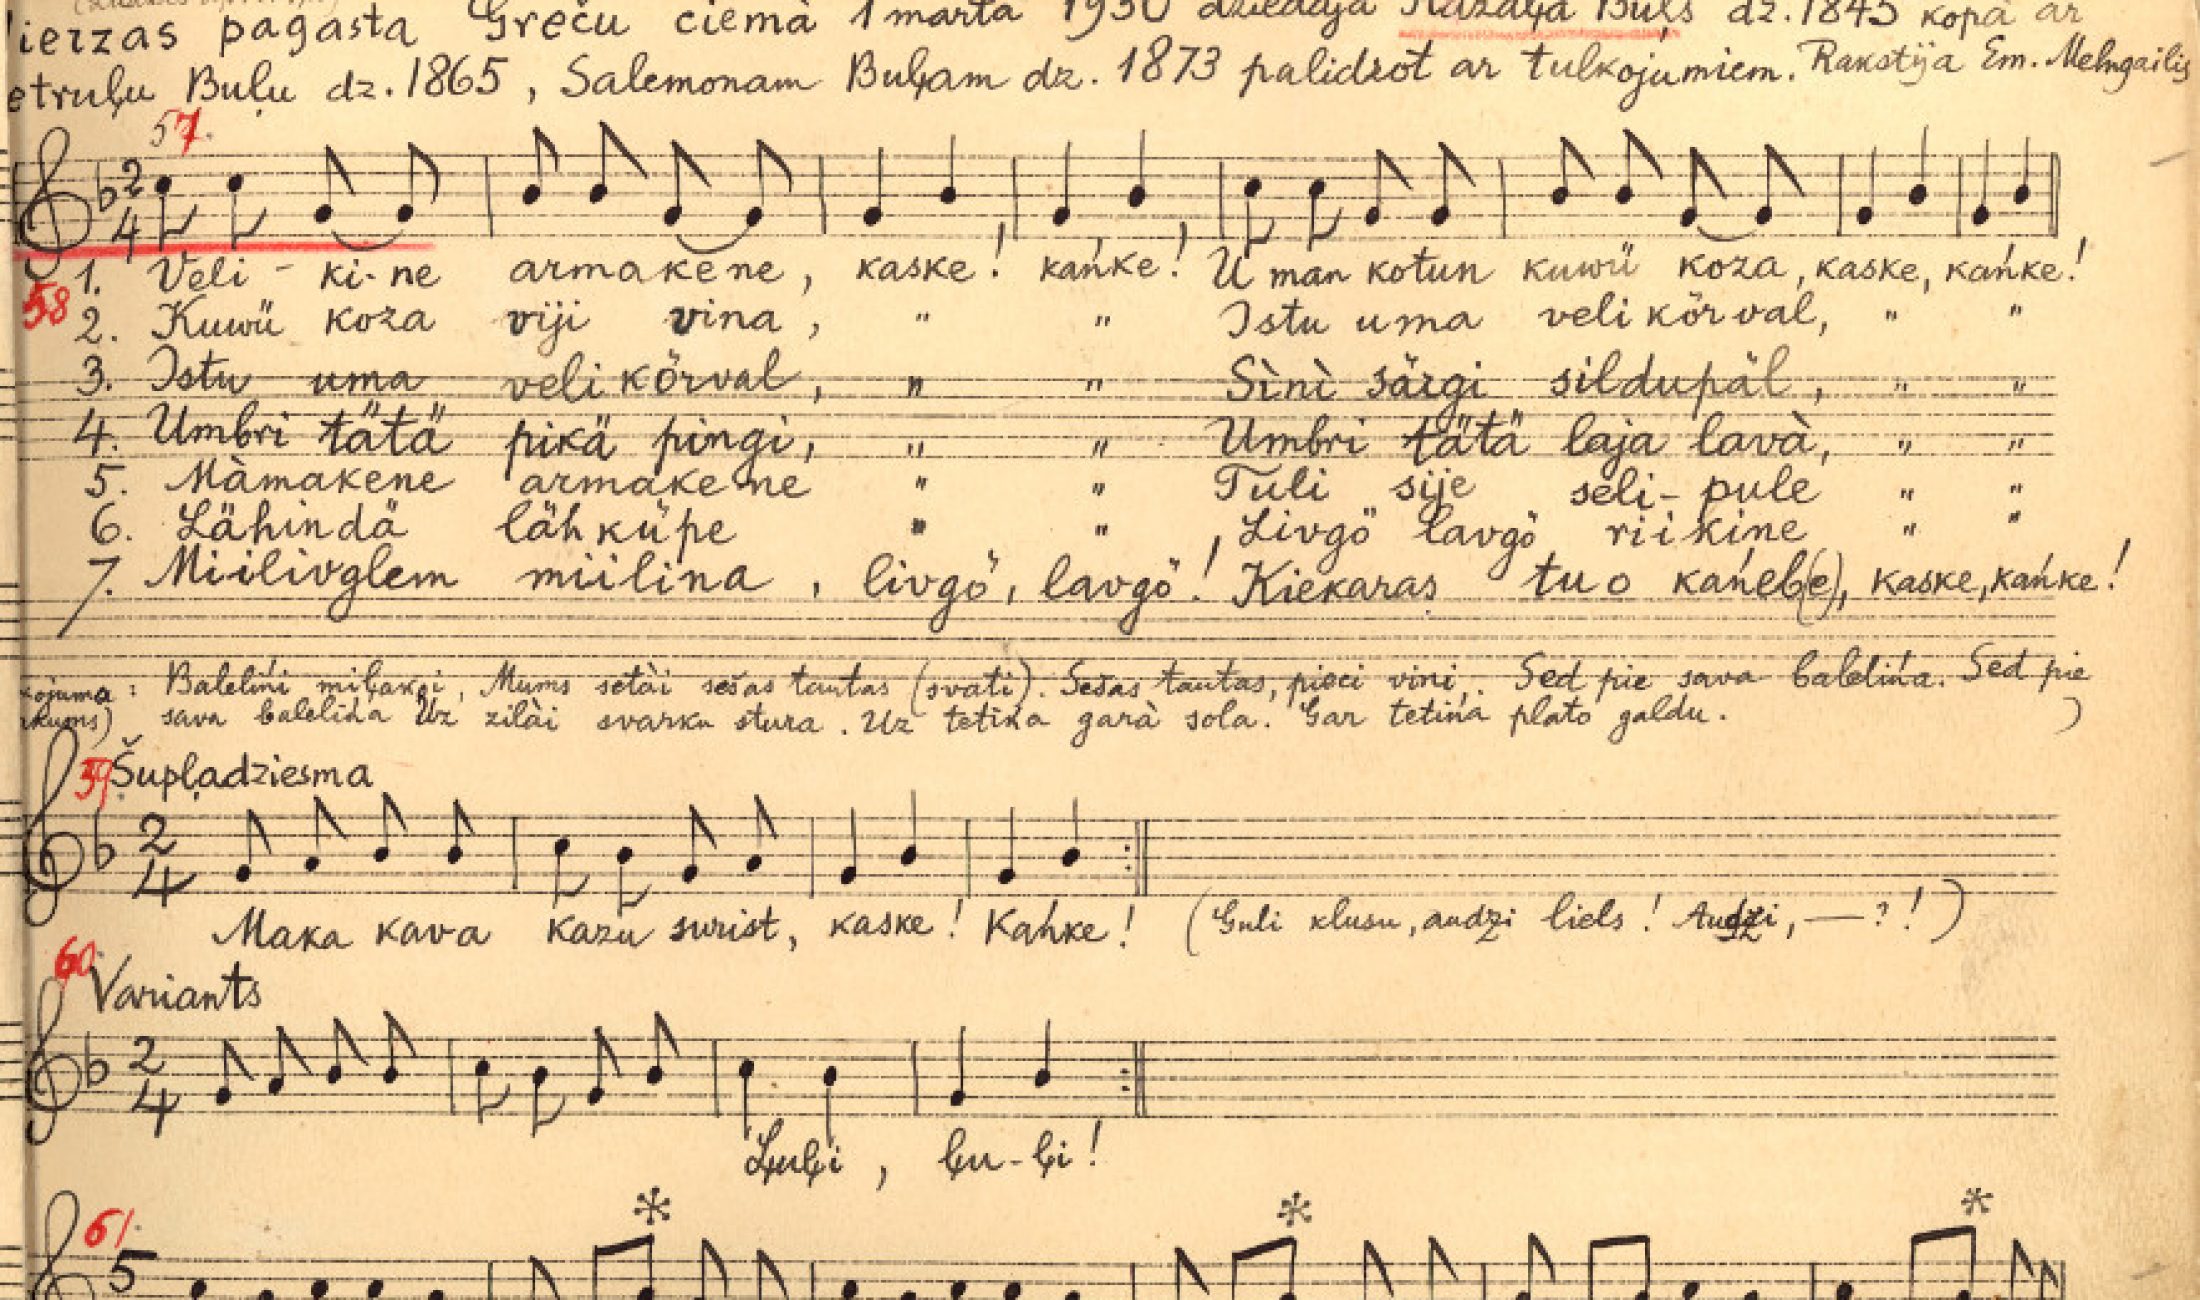 pagasta Greču ciemà 1 martà 1930 dziedāja Buļs dz. 1845 kopā ar
Buļu dz. 1865, Salemonam Buļam dz. 1873 palidzot ar tulkojumiem. Rakstija Em. Melngailis
57.
2 4
1. Veli - ki-ne armakene, kaske! kańke! U man kotun kuwü koza, kaske, kańke!
58
2. Kuwü koza viji vina, " " Istu uma veli körval, " "
3. Istu uma veli körval, " " Sìnì särgi sildupäl, " "
4. Umbri tätä pikä pingi, " " Umbri tätä laja lavà, " "
5. Màmakene armakene " " Tuli sije seli-pule " "
6. Lähindä läh küpe " " , Livgö lavgö riikine " "
7. Miilivglem miilina, livgö, lavgö! Kiekaras tuo kańeb(e), kaske, kańke!
: Balelińi miļakģi, Mums sētài sešas tautas (svati). Sešas tautas, pieci vini,. Sed pie sava balelińa. Sed pie
sava balelińa Uz zilài svarku stura. Uz tetińa garà sola. Gar tetińa plato galdu. )
59 Šupļadziesma
2 4
Maka kava kazu surist, kaske! Kańke! (Guli klusu, audzi liels! Audzi, — ? !)
60.
Variants
2 4
Ļuļi, ļu-ļi!
* * *
61.
5